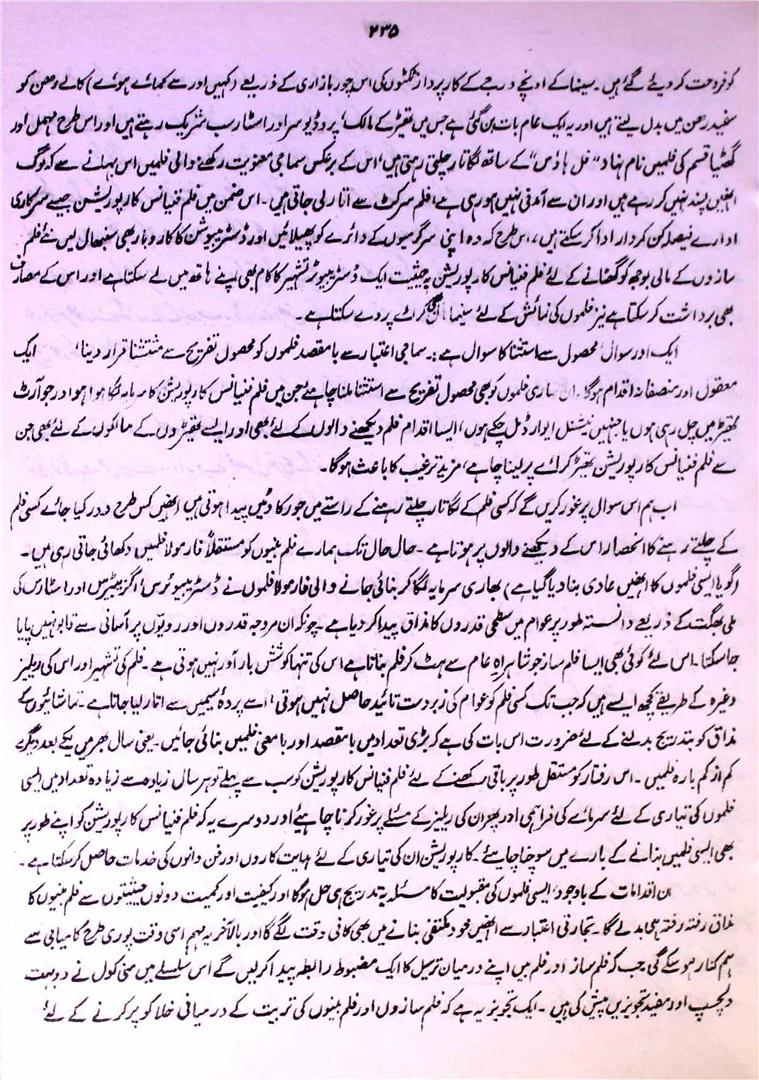 ۲۳۵
کو فروخت کر دیئے گئے ہیں۔ سینما کے اونچے درجے کے کارپرداز ٹکٹوں کی اس چور بازاری کے ذریعے (کہیں اور سے کمائے ہوئے) کالے دھن کو
سفید دھن میں بدل لیتے ہیں اور یہ ایک عام بات بن گئی ہے جس میں تھیٹر کے مالک، پروڈیوسر اور اسٹار سب شریک رہتے ہیں اور اس طرح مہمل اور
گھٹیا قسم کی فلمیں نام نہاد "فل ہاؤس" کے ساتھ لگاتار چلتی رہتی ہیں، اس کے برعکس سماجی معنویت رکھنے والی فلمیں اس بہانے سے کہ لوگ
انھیں پسند نہیں کر رہے ہیں اور ان سے آمدنی نہیں ہو رہی ہے، فلم سرکٹ سے اتار لی جاتی ہیں۔ اس ضمن میں فلم فنیانس کارپوریشن جیسے سرکاری
ادارے فیصلہ کن کردار ادا کر سکتے ہیں، اس طرح کہ وہ اپنی سرگرمیوں کے دائرے کو پھیلائیں اور ڈسٹری بیوشن کا کاروبار بھی سنبھال لیں نئے فلم
سازوں کے مالی بوجھ کو گھٹانے کے لئے فلم فنیانس کارپوریشن بہ حیثیت ایک ڈسٹری بیوٹر تشہیر کا کام بھی اپنے ہاتھ میں لے سکتا ہے اور اس کے مصارف
بھی برداشت کر سکتا ہے نیز فلموں کی نمائش کے لئے سینما ہال کرائے پر دے سکتا ہے۔
ایک اور سوال، محصول سے استثنا کا سوال ہے۔ سماجی اعتبار سے بامقصد فلموں کو محصول تفریح سے مستثنا قرار دینا، ایک
معقول اور منصفانہ اقدام ہوگا۔ ان ساری فلموں کو بھی محصول تفریح سے استثنا ملنا چاہئے جن میں فلم فنیانس کارپوریشن کا سرمایہ لگا ہوا ہو اور جو آرٹ
تھیٹر میں چل رہی ہوں یا جنہیں نیشنل ایوارڈ مل چکے ہوں، ایسا اقدام فلم دیکھنے والوں کے لئے بھی اور ایسے تھیٹروں کے مالکوں کے لئے بھی جن
سے فلم فنیانس کارپوریشن تھیٹر کرائے پر لینا چاہے، مزید ترغیب کا باعث ہوگا۔
اب ہم اس سوال پر غور کریں گے کہ کسی فلم کے لگاتار چلتے رہنے کے راستے میں جو رکاوٹیں پیدا ہوتی ہیں انھیں کس طرح دور کیا جائے کسی فلم
کے چلتے رہنے کا انحصار اس کے دیکھنے والوں پر ہوتا ہے۔ حال حال تک ہمارے فلم بینوں کو مستقلاً فارمولا فلمیں دکھائی جاتی رہی ہیں۔
(گویا ایسی فلموں کا انھیں عادی بنا دیا گیا ہے) بھاری سرمایہ لگا کر بنائی جانے والی فارمولا فلموں نے ڈسٹری بیوٹرس، اگزیبیٹرس اور اسٹارس کی
ملی بھگت کے ذریعے دانستہ طور پر عوام میں سطحی قدروں کا مذاق پیدا کر دیا ہے۔ چونکہ ان مروجہ قدروں اور رویّوں پر آسانی سے قابو نہیں پایا
جا سکتا۔ اس لئے کوئی بھی ایسا فلم ساز جو شاہراہِ عام سے ہٹ کر فلم بناتا ہے اس کی تنہا کوشش بار آور نہیں ہوتی ہے۔ فلم کی تشہیر اور اس کی ریلیز
وغیرہ کے طریقے کچھ ایسے ہیں کہ جب تک کسی فلم کو عوام کی زبردست تائید حاصل نہیں ہوتی، اسے پردۂ سیمیں سے اتار لیا جاتا ہے۔ تماشائیوں کے
مذاق کو بتدریج بدلنے کے لئے ضرورت اس بات کی ہے کہ بڑی تعداد میں بامقصد اور بامعنی فلمیں بنائی جائیں۔ یعنی سال بھر میں یکے بعد دیگرے
کم از کم بارہ فلمیں۔ اس رفتار کو مستقل طور پر باقی رکھنے کے لئے فلم فنیانس کارپوریشن کو سب سے پہلے تو ہر سال زیادہ سے زیادہ تعداد میں ایسی
فلموں کی تیاری کے لئے سرمائے کی فراہمی اور پھر ان کی ریلیز کے مسئلے پر غور کرنا چاہیئے اور دوسرے یہ کہ فلم فنیانس کارپوریشن کو اپنے طور پر
بھی ایسی فلمیں بنانے کے بارے میں سوچنا چاہیئے۔ کارپوریشن ان کی تیاری کے لئے ہدایت کاروں اور فن دانوں کی خدمات حاصل کر سکتا ہے۔
ان اقدامات کے باوجود، ایسی فلموں کی مقبولیت کا مسئلہ بہ تدریج ہی حل ہوگا اور کیفیت اور کمیت دونوں حیثیتوں سے فلم بینوں کا
مذاق رفتہ رفتہ ہی بدلے گا۔ تجارتی اعتبار سے انھیں خود مکتفی بنانے میں بھی کافی وقت لگے گا اور بالآخر یہ مہم اسی وقت پوری طرح کامیابی سے
ہم کنار ہو سکے گی جب کہ فلم ساز اور فلم بین اپنے درمیان ترسیل کا ایک مضبوط رابطہ پیدا کر لیں گے اس سلسلے میں منی کول نے دو بہت
دلچسپ اور مفید تجویزیں پیش کی ہیں۔ ایک تجویز یہ ہے کہ فلم سازوں اور فلم بینوں کی تربیت کے درمیانی خلا کو پر کرنے کے لئے